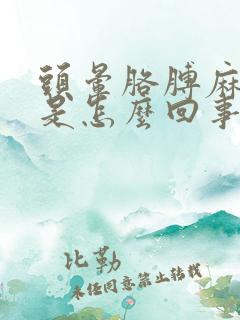 頭暈胳膊麻
是怎麼回事
比勒
未经同意禁止转载